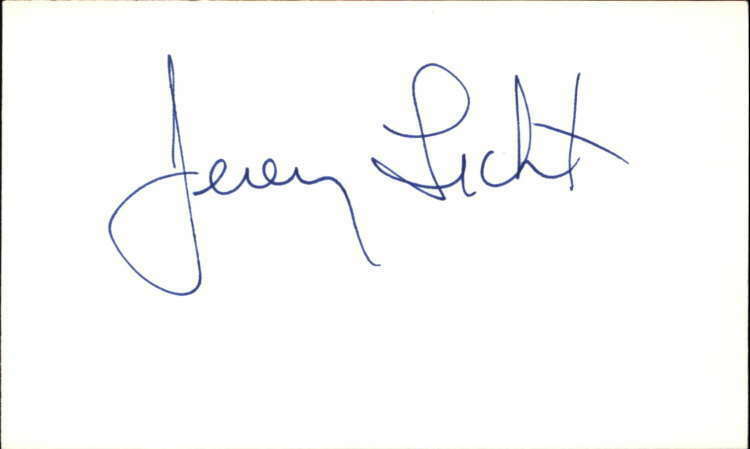 Jeremy Licht